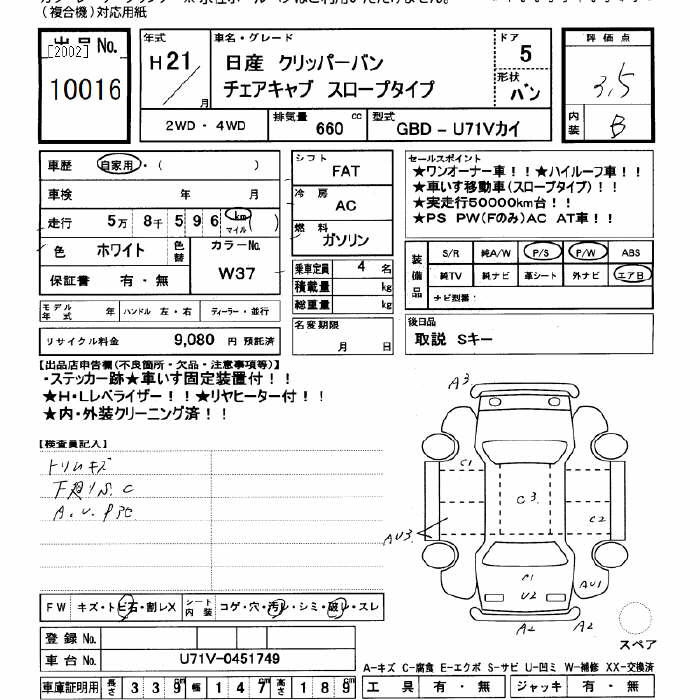 (複合機)対応用紙
出品No.
[2002]
10016
年式
H21
月
車名・グレード
日産 クリッパーバン
チェアキャブ スロープタイプ
ドア
5
形状
バン
評価点
3.5
内装
B
2WD・4WD
排気量
660 cc
型式
GBD-U71Vカイ
車歴 自家用・( )
車検 年 月
走行 5万 8千 5 9 6 km マイル ( )
色 ホワイト 色替
カラーNo.
W37
保証書 有・無
シフト
FAT
冷房
AC
燃料
ガソリン
乗車定員 4 名
積載量 kg
総重量 kg
セールスポイント
★ワンオーナー車!!★ハイルーフ車!!
★車いす移動車(スロープタイプ)!!
★実走行50000km台!!
★PS PW(Fのみ)AC AT車!!
装備品
S/R 純A/W P/S P/W ABS
純TV 純ナビ 革シート 外ナビ エアB
ナビ型番:
モデル年式 年 ハンドル 左・右 ディーラー・並行
リサイクル料金 9,080 円 預託済
名変期限
月 日
後日品
取説 Sキー
【出品店申告欄(不良箇所・欠品・注意事項等)】
・ステッカー跡★車いす固定装置付!!
★H・Lレベライザー!!★リヤヒーター付!!
★内・外装クリーニング済!!
【検査員記入】
トリムキズ
下廻りS.C
A.U.P
A3
C1
C3
C2
AU3
C1
U2
AU1
A2
A2
スペア
FW キズ・トビ石・割レX
シート内装 コゲ・穴・汚レ・シミ・破レ・スレ
登録No.
車台No. U71V-0451749
車庫証明用 長さ 339cm 幅 147cm 高さ 189cm
A-キズ C-腐食 E-エクボ S-サビ U-凹ミ W-補修 XX-交換済
工具 有・無 ジャッキ 有・無